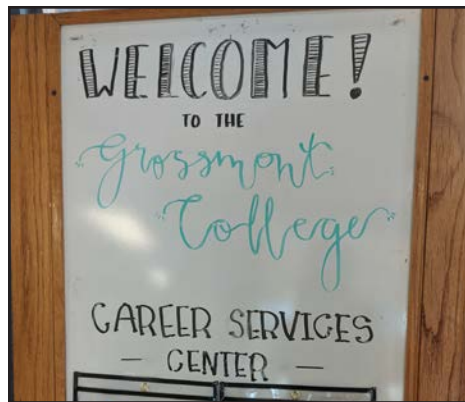 WELCOME!
TO THE
Grossmont
College
CAREER SERVICES
— CENTER —